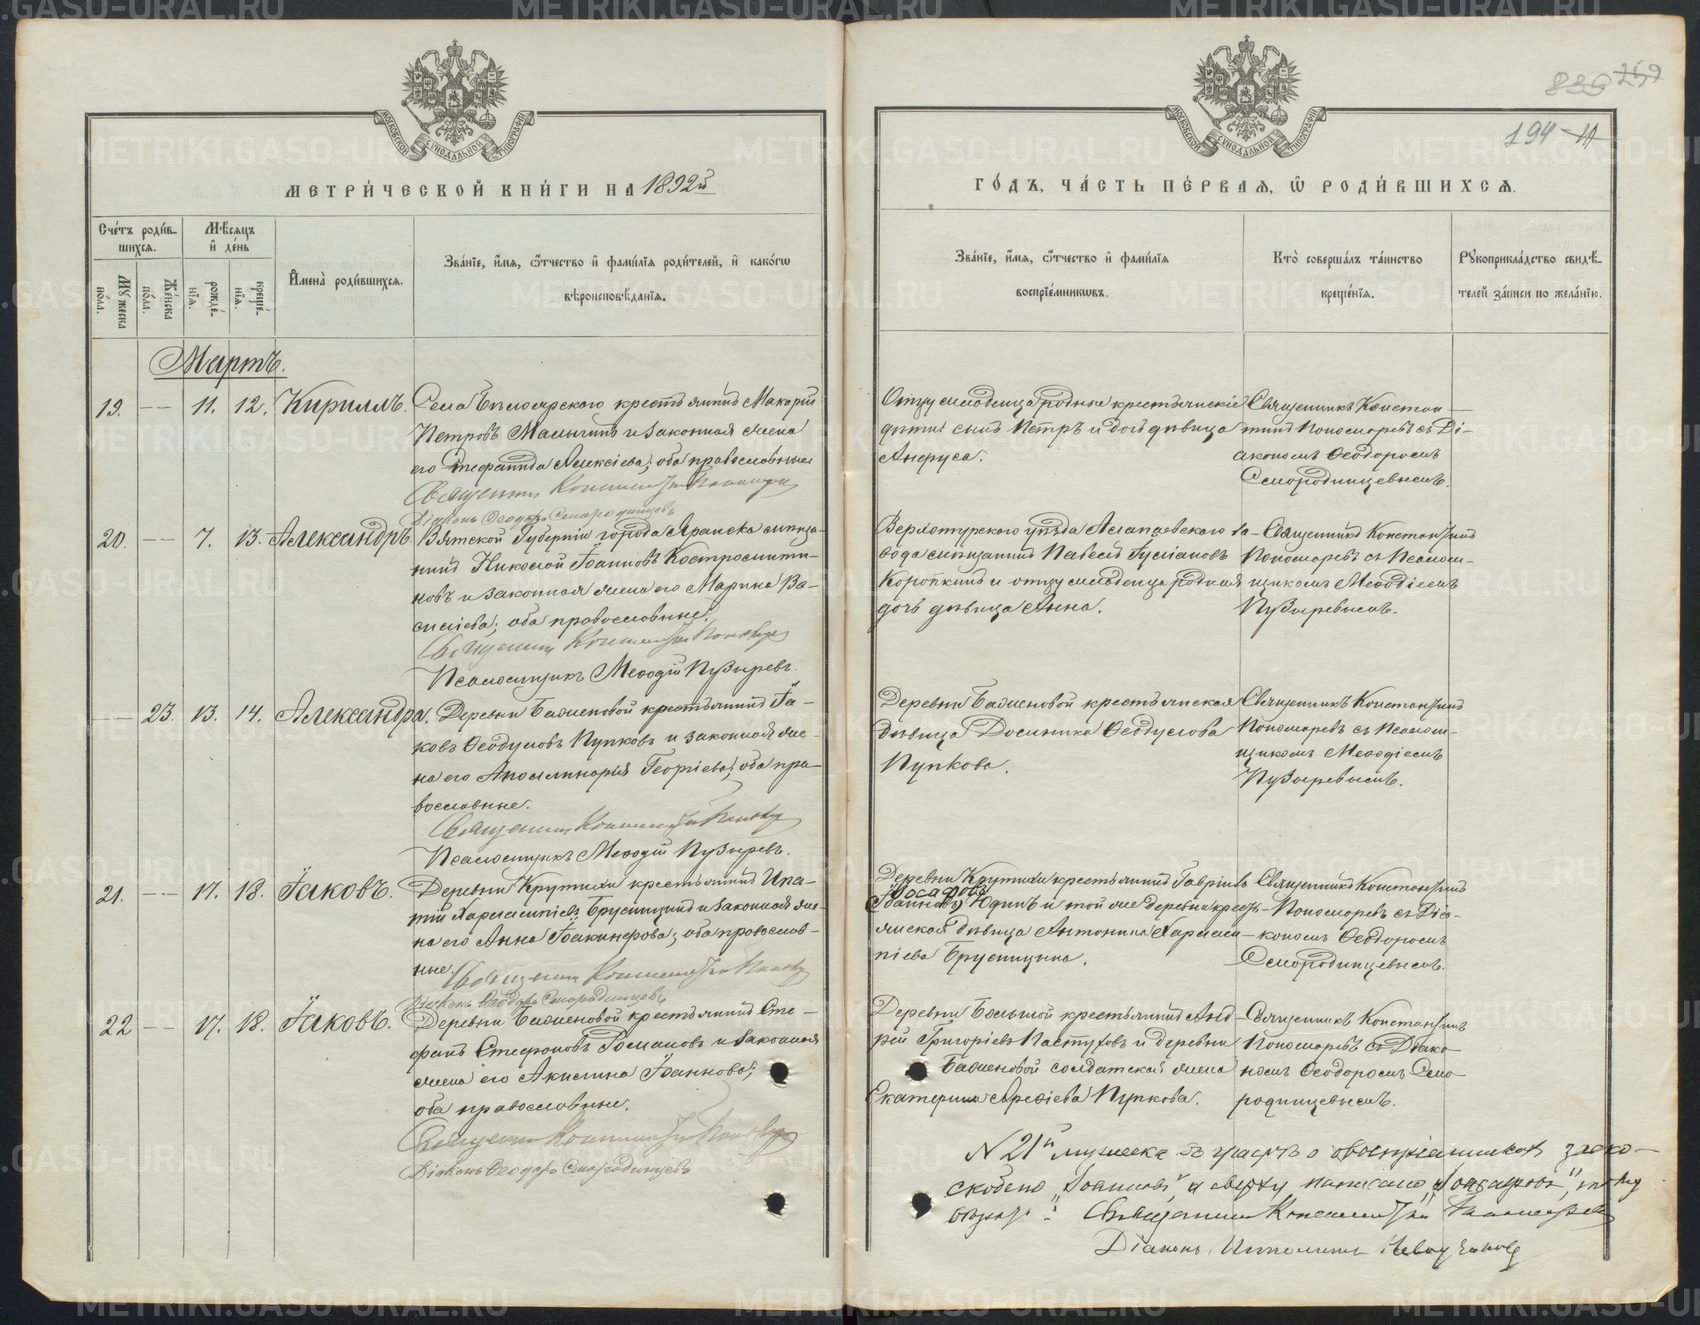 МЕТРИ́ЧЕСКОЙ КНИ́ГИ НА 1892й
ГО́ДЪ, ЧА́СТЬ ПЕ́РВАЯ, Ѡ РОДИ́ВШИХСЯ.
194
Сче́тъ роди́в-
шихся.
Му́жеска по́ла.
Же́нска по́ла.
Мѣ́сяцъ и҆ де́нь
рожде́-
нїя.
креще́-
нїя.
И҆мена̀ роди́вшихся.
Зва́нїе, и҆́мя, ѻ҆́тчество и҆ фами́лїя роди́телей, и҆ како́гѡ
вѣроисповѣ́данїя.
Зва́нїе, и҆́мя, ѻ҆́тчество и҆ фами́лїя
воспрїе́мникѡвъ.
Кто̀ соверша́лъ та́инство
креще́нїя.
Рꙋкоприкла́дство свидѣ́-
телей за́писи по жела́нїю.
Мартъ.
19. 11. 12. Кириллъ.
Села Бѣлоярскаго крестьянинъ Макарій
Петровъ Малыгинъ и законная жена
его Стефанида Алексіева; оба православные
Священникъ Константинъ Пономаревъ
Діаконъ Ѳеодоръ Смородинцевъ
Отцу младенца родные крестьянскіе
дѣти: сынъ Петръ и дочь дѣвица
Священникъ Констан-
тинъ Пономаревъ съ Ді-
акономъ Ѳеодоромъ
Смородинцевымъ.
20. 7. 13. Александръ.
Вятской Губерніи города Яранска мѣща-
нинъ Николай Іоанновъ Костромити-
новъ и законная жена его Марина Ва-
силіева; оба православные.
Священникъ Константинъ Пономаревъ
Псаломщикъ Меѳодій Пузыревъ.
Верхотурскаго уѣзда Алапаевскаго за-
вода мѣщанинъ Павелъ
и отцу младенца родная
дочь дѣвица Анна.
Священникъ Константинъ
Пономаревъ съ Псалом-
щикомъ Меѳодіемъ
Пузыревымъ.
23. 13. 14. Александра.
Деревни Баженовой крестьянинъ Іа-
ковъ Ѳеодуловъ Пупковъ и законная же-
на его Аполлинарія Георгіева; оба пра-
вославные.
Священникъ Константинъ Пономаревъ
Псаломщикъ Меѳодій Пузыревъ.
Деревни Баженовой крестьянская
дѣвица Домника Ѳеодулова
Пупкова.
Священникъ Константинъ
Пономаревъ съ Псалом-
щикомъ Меѳодіемъ
Пузыревымъ.
21. 17. 18. Іаковъ.
Деревни Крутихи крестьянинъ Ипа-
тій Харлампіевъ Брусницынъ и законная же-
на его Анна Іоакинѳова; оба православ-
ные.
Священникъ Константинъ Пономаревъ
Діаконъ Ѳеодоръ Смородинцевъ
Деревни Крутихи крестьянинъ Гавріилъ
Іосафовъ
Юдинъ и той же деревни крест-
янская дѣвица Антонина Харлам-
піева Брусницына.
Священникъ Константинъ
Пономаревъ съ Діа-
кономъ Ѳеодоромъ
Смородинцевымъ.
22 17. 18. Іаковъ.
Деревни Баженовой крестьянинъ Сте-
фанъ Стефановъ и законная
жена его Акилина Іоаннова;
оба православные.
Священникъ Константинъ Пономаревъ
Діаконъ Ѳеодоръ Смородинцевъ
Деревни Большой крестьянинъ Анд-
рей Григоріевъ Пастуховъ и деревни
Баженовой солдатская жена
Екатерина Арефіева Пупкова.
Священникъ Константинъ
Пономаревъ съ Діако-
номъ Ѳеодоромъ Смо-
родинцевымъ.
N 21й мужеска въ графѣ о воспріемникахъ
скоблено „Іоанновъ", а сверху написано „Іосафовъ",
Священникъ Константинъ Пономаревъ
Діаконъ Ипполитъ